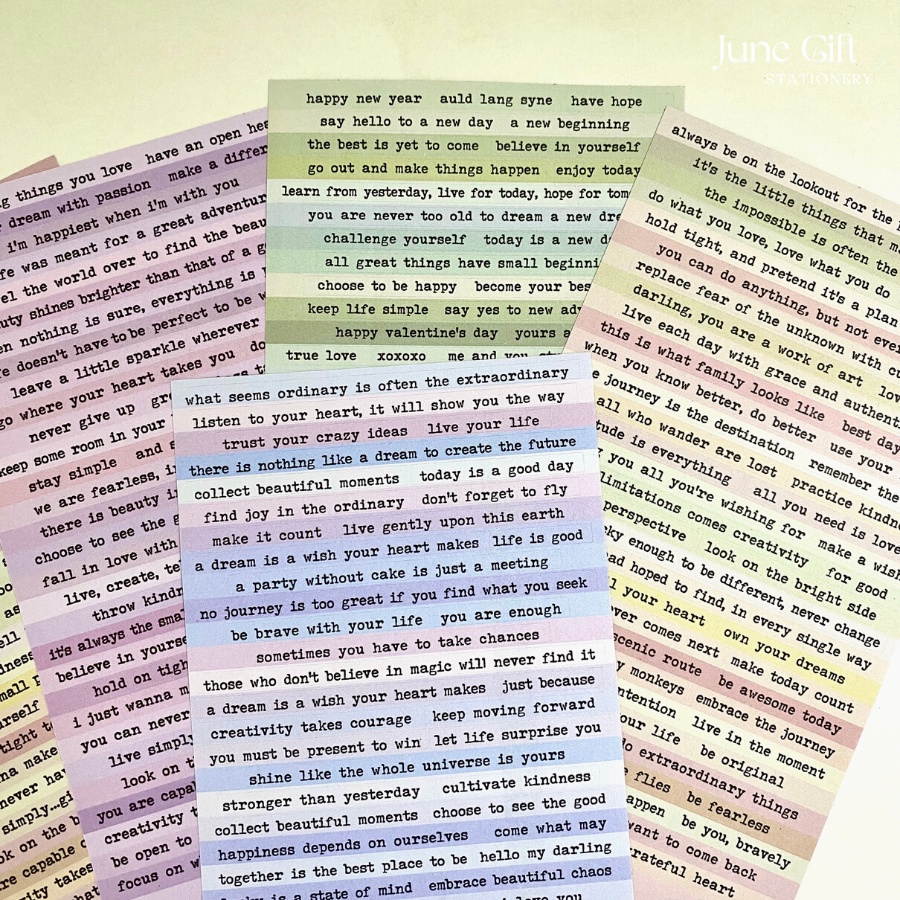 June Gift
STATIONERY
happy new year auld lang syne have hope
say hello to a new day a new beginning
the best is yet to come believe in yourself
go out and make things happen enjoy today
learn from yesterday, live for today, hope for
you are never too old to dream a new
challenge yourself today is a new
all great things have small
choose to be happy become your
keep life simple say yes to new
happy valentine's day yours
true love xoxoxo me and you
things you love have an open
dream with passion make a
i'm happiest when i'm with you
was meant for a great
the world over to find the
shines brighter than that of a
nothing is sure, everything is
doesn't have to be perfect to be
leave a little sparkle wherever
go where your heart takes you
never give up
keep some room in your
stay simple and
we are fearless,
there is beauty
choose to see the
fall in love with
live, create,
throw
it's always the
believe in
hold on
i just wanna
you can never
live
look on
you are
creativity
be open to
focus on
what seems ordinary is often the extraordinary
listen to your heart, it will show you the way
trust your crazy ideas live your life
there is nothing like a dream to create the future
collect beautiful moments today is a good day
find joy in the ordinary don't forget to fly
make it count live gently upon this earth
a dream is a wish your heart makes life is good
a party without cake is just a meeting
no journey is too great if you find what you seek
be brave with your life you are enough
sometimes you have to take chances
those who don't believe in magic will never find it
a dream is a wish your heart makes just because
creativity takes courage keep moving forward
you must be present to win let life surprise you
shine like the whole universe is yours
stronger than yesterday cultivate kindness
collect beautiful moments choose to see the good
happiness depends on ourselves come what may
together is the best place to be hello my darling
is a state of mind embrace beautiful chaos
love you
always be on the lookout for the
it's the little things that
the impossible is often the
do what you love, love what you do
hold tight, and pretend it's a plan
you can do anything, but not
replace fear of the unknown with
darling, you are a work of art
live each day with grace and
this is what family looks like best
when you know better, do better use your
journey is the destination remember the
all who wander are lost practice
is everything all you need is love
you all you're wishing for make a wish
limitations comes creativity for good
perspective look on the bright side
enough to be different, never change
hoped to find, in every single way
your heart own your dreams
comes next make today count
route be awesome today
monkeys embrace the journey
live in the moment
your life be original
extraordinary things
flies be fearless
be you, bravely
want to come back
heart